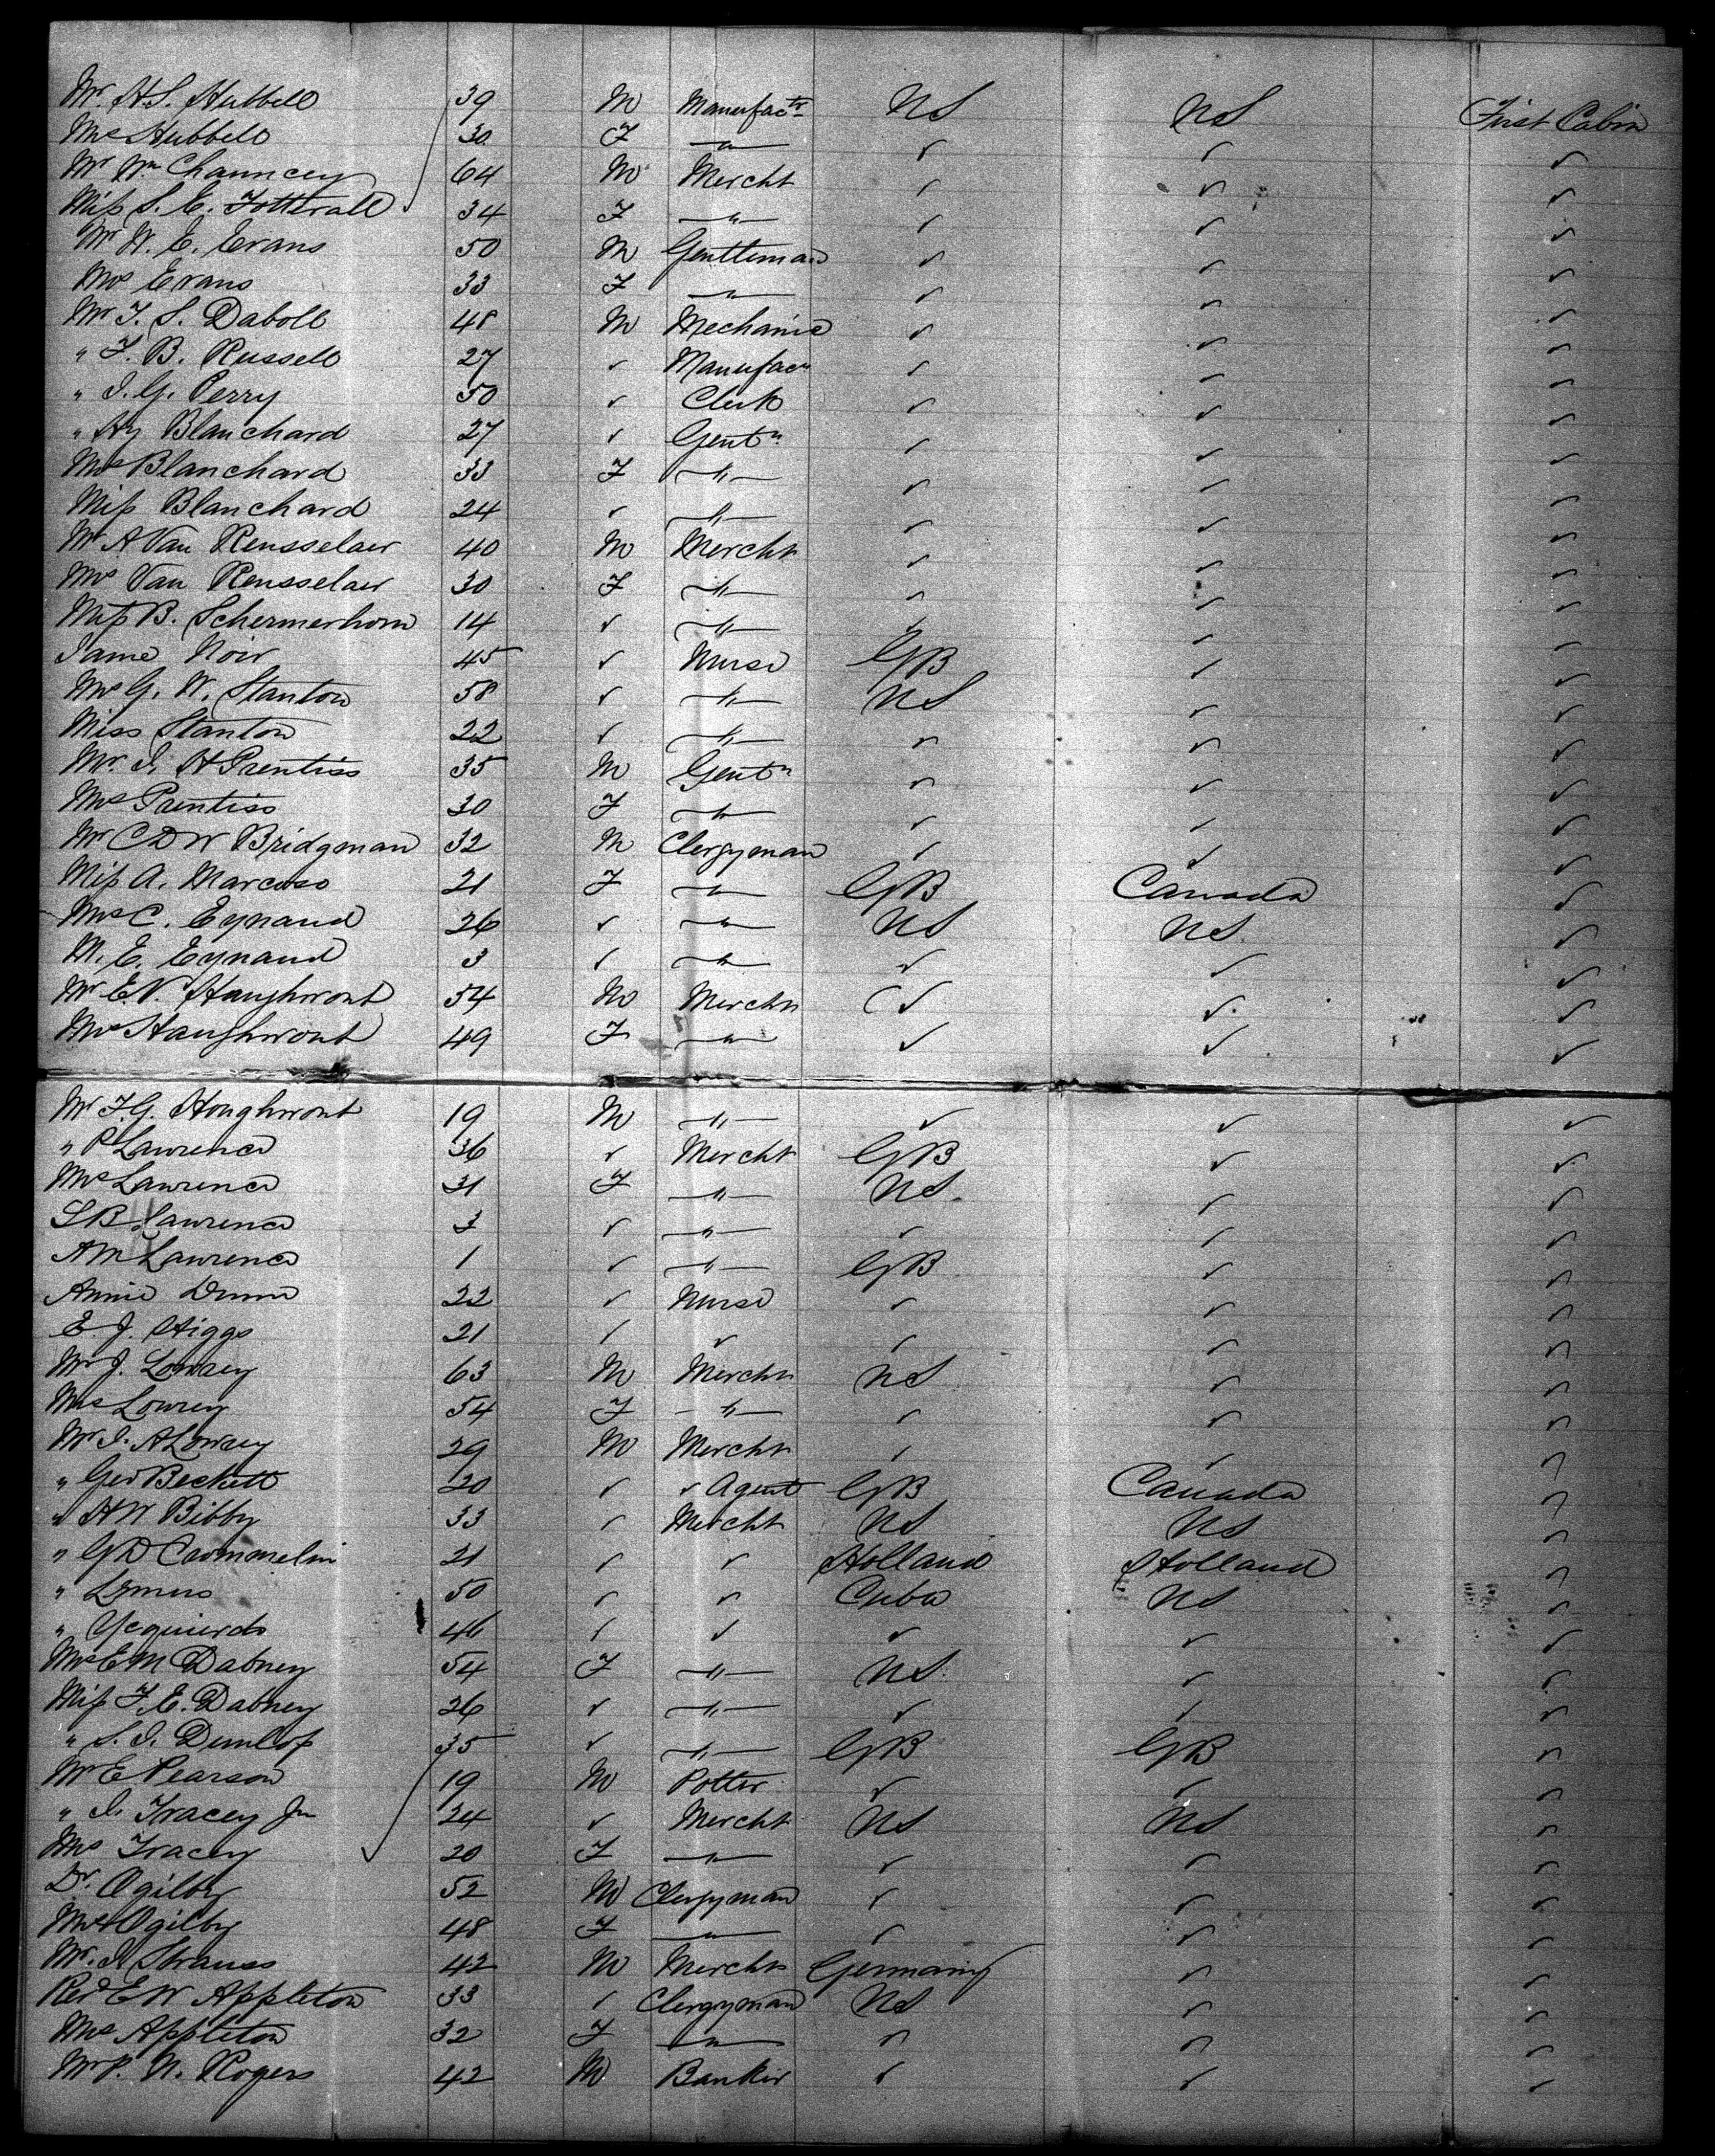 Mr. H.S. Hubbell 39 M Manufactr US US First Cabin
Mrs Hubbell 30 F —"— ✓ ✓ ✓
Mr Wm Chauncey 64 M Mercht ✓ ✓ ✓
Miss S. E. Fotterall 34 F —"— ✓ ✓ ✓
Mr W. E. Evans 50 M Gentleman ✓ ✓ ✓
Mrs Evans 33 F —"— ✓ ✓ ✓
Mr T. S. Daboll 48 M Mechanic ✓ ✓ ✓
" F. B. Russell 27 ✓ Manufacr ✓ ✓ ✓
" I. G. Perry 50 ✓ Clerk ✓ ✓ ✓
" Hy Blanchard 27 ✓ Gentn ✓ ✓ ✓
Mrs Blanchard 33 F —"— ✓ ✓ ✓
Miss Blanchard 24 ✓ —"— ✓ ✓ ✓
Mr A Van Rensselaer 40 M Mercht ✓ ✓ ✓
Mrs Van Rensselaer 30 F —"— ✓ ✓ ✓
Miss B. Schermerhorn 14 ✓ —"— ✓ ✓ ✓
Jame Noir 45 ✓ Nurse GB ✓ ✓
Mrs G. W. Stanton 58 ✓ —"— US ✓ ✓
Miss Stanton 22 ✓ —"— ✓ ✓ ✓
Mr. I. H Prentiss 35 M Gentn ✓ ✓ ✓
Mrs Prentiss 30 F —"— ✓ ✓ ✓
Mr C D W Bridgman 32 M Clergyman ✓ ✓ ✓
Miss A. Marcuso 21 F —"— GB Canada ✓
Mrs C. Eynaud 26 ✓ —"— US US. ✓
M. E. Eynaud 3 ✓ —"— ✓ ✓ ✓
Mr E.V. Haughwout 54 M Mercht ✓ ✓ ✓
Mrs Haughwout 49 F —"— ✓ ✓ ✓
Mr F.G. Houghwout 19 M —"— ✓ ✓ ✓
" P Lawrence 36 ✓ Mercht GB ✓ ✓
Mrs Lawrence 31 F —"— US. ✓ ✓
S B Lawrence 3 ✓ —"— ✓ ✓ ✓
A M Lawrence 1 ✓ —"— GB ✓ ✓
Annie Dunn 22 ✓ Nurse ✓ ✓ ✓
E. J. Higgs 21 ✓ ✓ ✓ ✓ ✓
Mr J. Lowrey 63 M Mercht US ✓ ✓
Mrs Lowrey 54 F —"— ✓ ✓ ✓
Mr I. A Lowrey 29 M Mercht ✓ ✓ ✓
" Geo Beckett 20 ✓ ✓ Agent GB Canada ✓
" H W Bibby 33 ✓ Mercht US US ✓
" G D Crommelin 21 ✓ ✓ Holland Holland ✓
" Lemus 50 ✓ ✓ Cuba US ✓
" Ycquierdo 46 ✓ ✓ ✓ ✓ ✓
Mrs E M Dabney 54 F —"— US. ✓ ✓
Miss F. E. Dabney 26 ✓ —"— ✓ ✓ ✓
" S. I. Dunlop 35 ✓ —"— GB GB ✓
Mr E Pearson 19 M Potter ✓ ✓ ✓
" I. Tracey Jn 24 ✓ Mercht US US ✓
Mrs Tracey 20 F —"— ✓ ✓ ✓
Dr. Ogilby 52 M Clergyman ✓ ✓ ✓
Mrs Ogilby 48 F —"— ✓ ✓ ✓
Mr. I. Strauss 42 M Mercht Germany ✓ ✓
Revd E W Appleton 33 ✓ Clergyman US ✓ ✓
Mrs Appleton 32 F —"— ✓ ✓ ✓
Mr P. N. Rogers 42 M Banker ✓ ✓ ✓